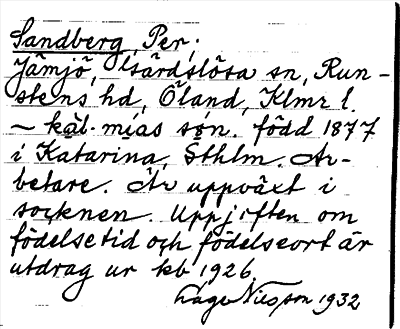 Sandberg, Per,
Jämjö, Gärdslösa sn, Run-
stens hd, Öland, Klmr l.
– käl. mias son. född 1877
i Katarina, Sthlm. Ar-
betare. Är uppväxt i
socknen. Uppgiften om
födelsetid och födelseort är
utdrag ur kb 1926.
Lage Nilsson 1932